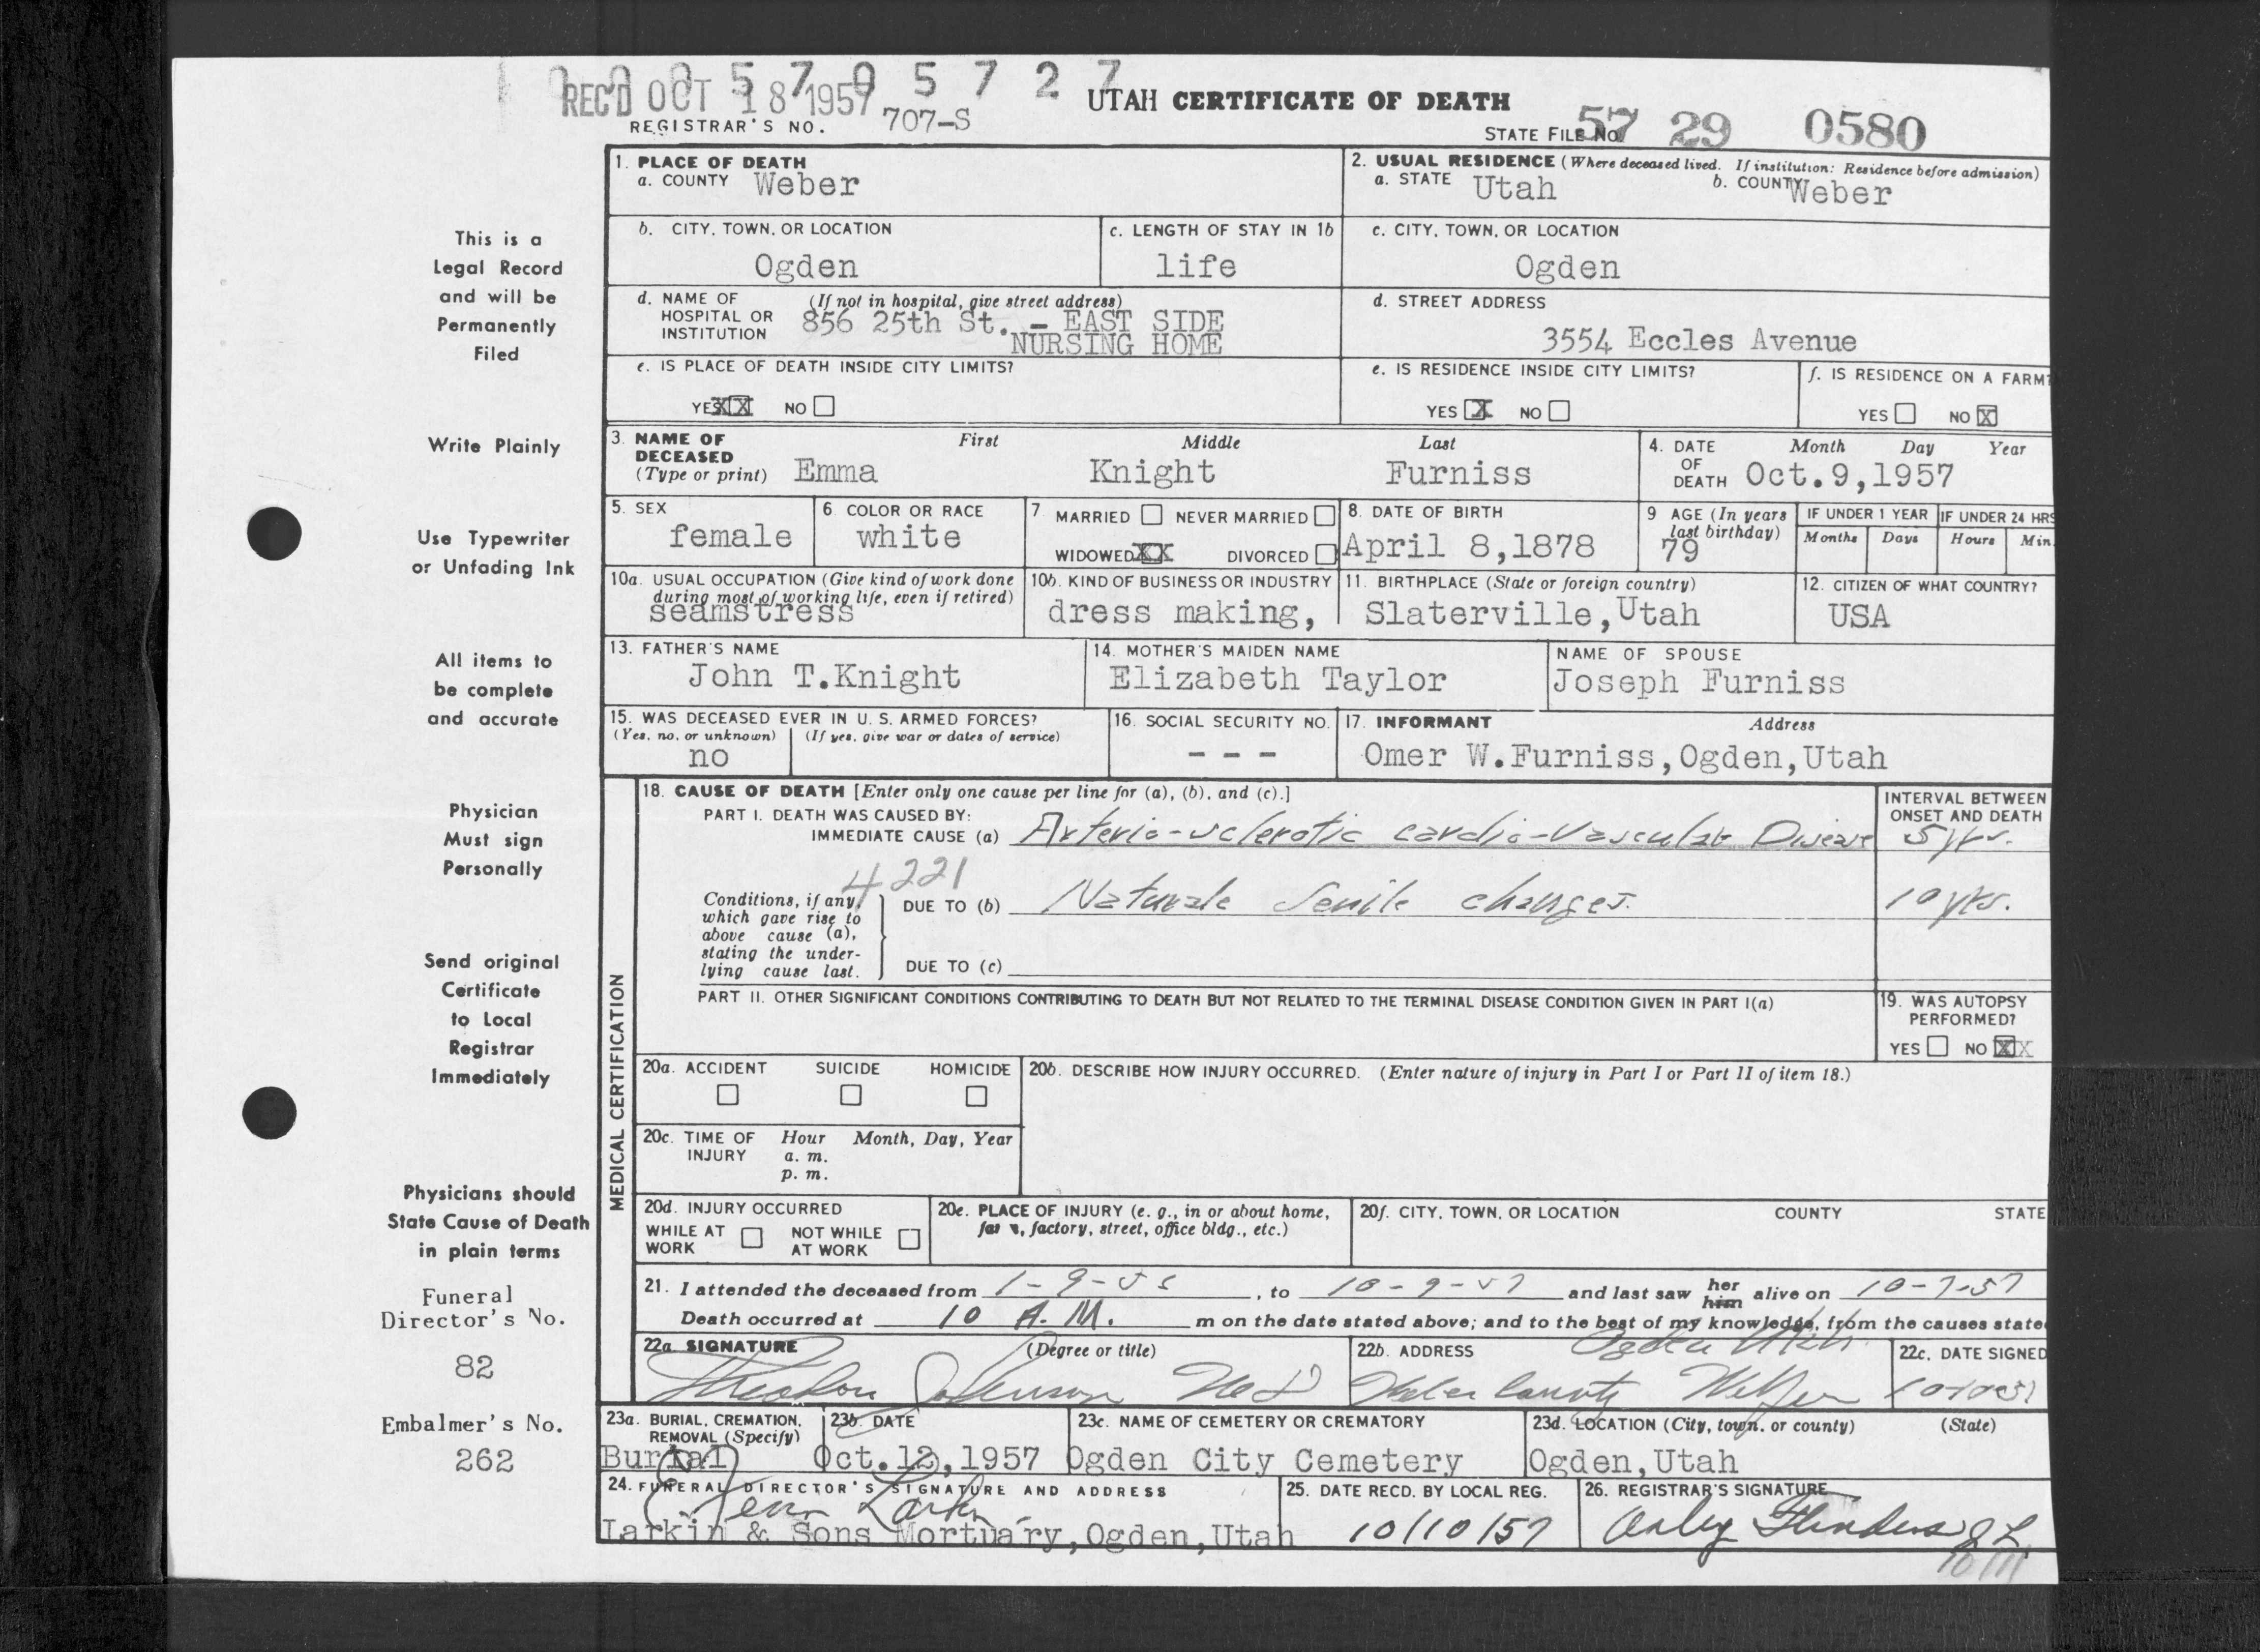 REC'D OCT 18 1957
0 5 7 0 5 7 2 7
UTAH CERTIFICATE OF DEATH
REGISTRAR'S NO. 707-S
STATE FILE NO. 57 29 0580
1. PLACE OF DEATH
a. COUNTY Weber
2. USUAL RESIDENCE (Where deceased lived. If institution: Residence before admission)
a. STATE Utah b. COUNTY Weber
b. CITY, TOWN, OR LOCATION
Ogden
c. LENGTH OF STAY IN 1b
life
c. CITY, TOWN, OR LOCATION
Ogden
d. NAME OF HOSPITAL OR INSTITUTION (If not in hospital, give street address)
856 25th St. - EAST SIDE
NURSING HOME
d. STREET ADDRESS
3554 Eccles Avenue
e. IS PLACE OF DEATH INSIDE CITY LIMITS?
YES XX NO
e. IS RESIDENCE INSIDE CITY LIMITS?
YES X NO
f. IS RESIDENCE ON A FARM?
YES NO X
3. NAME OF DECEASED (Type or print)
First Middle Last
Emma Knight Furniss
4. DATE OF DEATH Month Day Year
Oct.9,1957
5. SEX
female
6. COLOR OR RACE
white
7. MARRIED NEVER MARRIED
WIDOWED XX DIVORCED
8. DATE OF BIRTH
April 8,1878
9 AGE (In years last birthday)
79
IF UNDER 1 YEAR
Months Days
IF UNDER 24 HRS
Hours Min.
10a. USUAL OCCUPATION (Give kind of work done during most of working life, even if retired)
seamstress
10b. KIND OF BUSINESS OR INDUSTRY
dress making,
11. BIRTHPLACE (State or foreign country)
Slaterville,Utah
12. CITIZEN OF WHAT COUNTRY?
USA
13. FATHER'S NAME
John T.Knight
14. MOTHER'S MAIDEN NAME
Elizabeth Taylor
NAME OF SPOUSE
Joseph Furniss
15. WAS DECEASED EVER IN U. S. ARMED FORCES?
(Yes, no, or unknown) (If yes, give war or dates of service)
no
16. SOCIAL SECURITY NO.
- - -
17. INFORMANT Address
Omer W.Furniss,Ogden,Utah
MEDICAL CERTIFICATION
18. CAUSE OF DEATH [Enter only one cause per line for (a), (b), and (c).]
PART I. DEATH WAS CAUSED BY:
IMMEDIATE CAUSE (a) Arterio-sclerotic cardio-Vascular Disease
INTERVAL BETWEEN ONSET AND DEATH
5 yrs.
4221
Conditions, if any, which gave rise to above cause (a), stating the underlying cause last.
DUE TO (b) Naturale Senile changes.
10 yrs.
DUE TO (c)
PART II. OTHER SIGNIFICANT CONDITIONS CONTRIBUTING TO DEATH BUT NOT RELATED TO THE TERMINAL DISEASE CONDITION GIVEN IN PART I(a)
19. WAS AUTOPSY PERFORMED?
YES NO XX
20a. ACCIDENT SUICIDE HOMICIDE
20b. DESCRIBE HOW INJURY OCCURRED. (Enter nature of injury in Part I or Part II of item 18.)
20c. TIME OF INJURY Hour Month, Day, Year
a. m.
p. m.
20d. INJURY OCCURRED
WHILE AT WORK NOT WHILE AT WORK
20e. PLACE OF INJURY (e. g., in or about home, farm, factory, street, office bldg., etc.)
20f. CITY, TOWN, OR LOCATION COUNTY STATE
21. I attended the deceased from , to 10-9-57 and last saw her him alive on 10-7-57
Death occurred at 10 A.M. m on the date stated above; and to the best of my knowledge, from the causes state
22a. SIGNATURE (Degree or title)
22b. ADDRESS Ogden Utah
22c. DATE SIGNED
23a. BURIAL, CREMATION, REMOVAL (Specify)
Burial
23b. DATE
Oct.12,1957
23c. NAME OF CEMETERY OR CREMATORY
Ogden City Cemetery
23d. LOCATION (City, town, or county) (State)
Ogden,Utah
24. FUNERAL DIRECTOR'S SIGNATURE AND ADDRESS
Larkin & Sons Mortuary,Ogden,Utah
25. DATE RECD. BY LOCAL REG.
10/10/57
26. REGISTRAR'S SIGNATURE
This is a
Legal Record
and will be
Permanently
Filed
Write Plainly
Use Typewriter
or Unfading Ink
All items to
be complete
and accurate
Physician
Must sign
Personally
Send original
Certificate
to Local
Registrar
Immediately
Physicians should
State Cause of Death
in plain terms
Funeral
Director's No.
82
Embalmer's No.
262